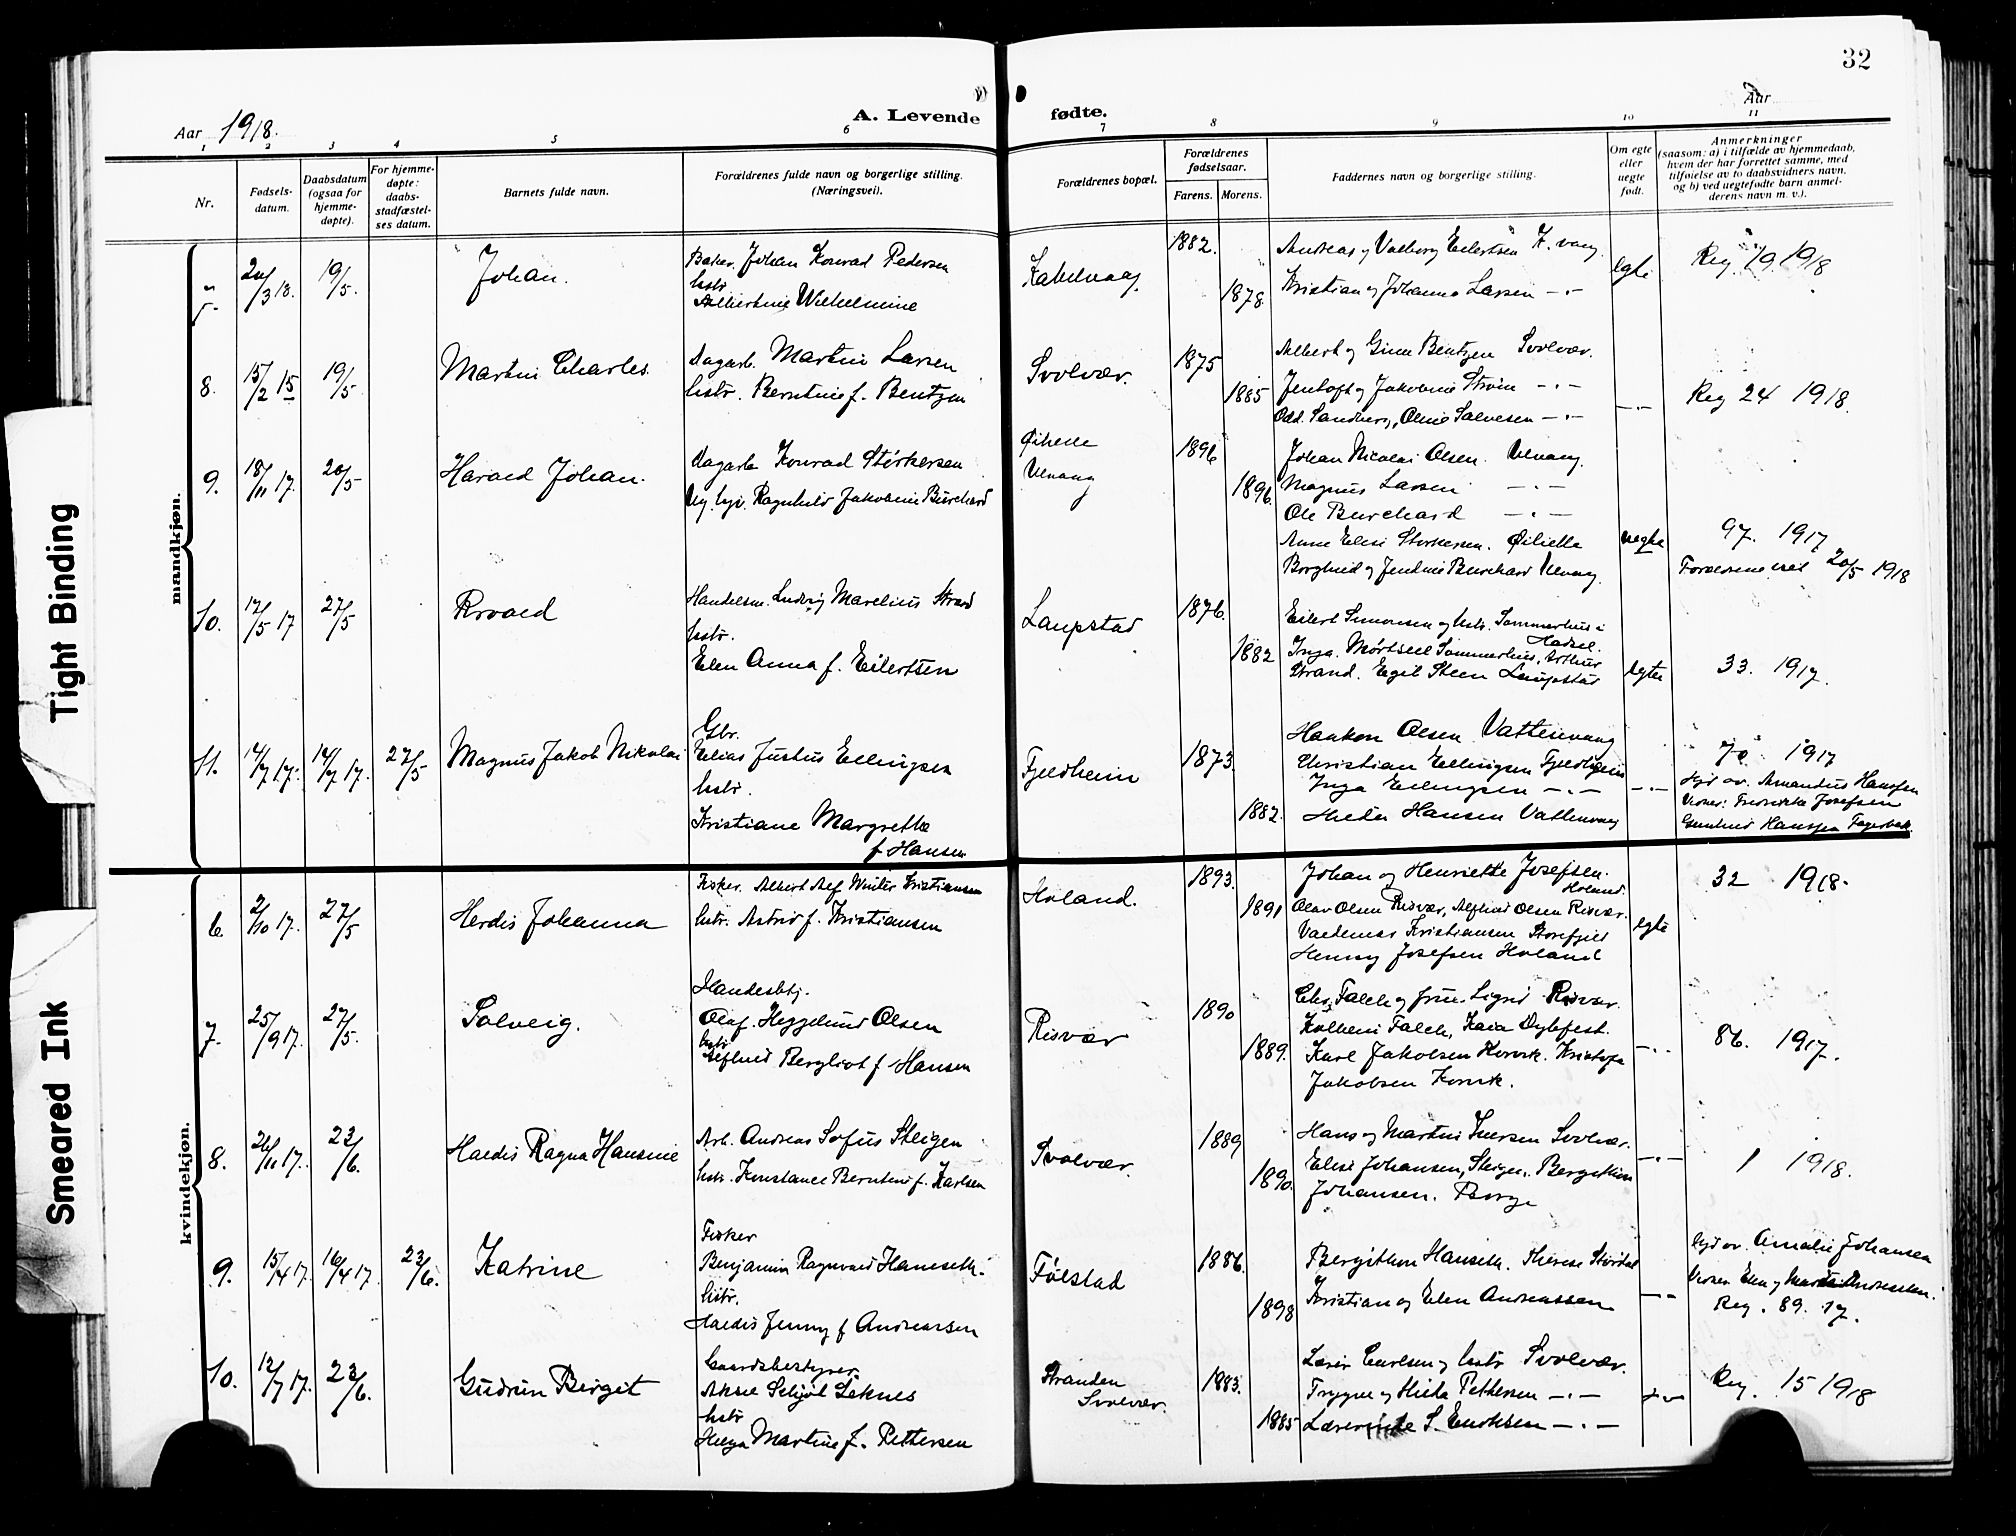 32
Aar 1918.
A. Levende fødte.
Aar
1 2 3 4 5 6 7 8 9 10 11
Nr.
Fødselsdatum.
Daabsdatum (ogsaa for hjemmedøpte).
For hjemmedøpte: daabsstadfæstelses datum.
Barnets fulde navn.
Forældrenes fulde navn og borgerlige stilling. (Næringsvei).
Forældrenes bopæl.
Forældrenes fødselsaar.
Farens. Morens.
Faddernes navn og borgerlige stilling.
Om egte eller uegte født.
Anmerkninger
(saasom: a) i tilfælde av hjemmedaab,
hvem der har forrettet samme, med
tilføielse av to daabsvidners navn,
og b) ved uegtefødte barn anmelderens navn m. v.).
mandkjøn.
20/3 18. 19/5. Johan.
Baker. Johan Konrad Pedersen
hstr
Albertine Wilhelmine
Kabelvaag. 1882. 1878.
Andreas og Valborg Eilertsen K.vaag
Kristian og Johanna Larsen -"-
egte
Reg. 19. 1918
8. 15/2 15 19/5 Martin Charles
Dagarb. Martin Larsen
hstr. Berntine f. Bentzen
Svolvær. 1875 1885
Albert og Gine Bentzen Svolvær.
Jentoft og Jakobine Strøm -"-
Odd. Sandberg, Oline Salvesen -"-
-"-
Reg 24 1918.
9. 18/11 17. 20/5 Harald Johan.
Dagarb Konrad Størkersen
Ug. Ragnhild Jakobine Burchard
1896 1896.
Johan Nicolai Olsen.
Magnus Larsen -"-
Ole Burchard -"-
Anne Elise Storkersen.
Borghild og Jentine Burchard
uegte
97. 1917
Forældrene viet 20/5 1918
10. 17/5 17 27/5 Roald
Handelsm. Ludvig Marelius Strand
hstr.
Elen Anna f. Eilertsen
Laupstad 1876. 1882
Eilert Simonsen og hstr. Sommerhus i
Hadsel.
Inga Mørtsell Sommerhus, Arthur
Strand. Egil Steen Laupstad
egte
33. 1917.
11. 14/7 17. 14/7 17. 27/5 Magnus Jakob Nikolai
Gbr.
Elias Justus Ellingsen
hstr.
Kristiane Margrethe
f Hansen
Fjeldheim 1873. 1882.
Haakon Olsen Vattervaag
Christian Ellingsen Fjeldheim
Inga Ellingsen -"-
Hansen Vattervaag
-"-
1917
Hjd av. Amandus Hanssen
Vidner: Fredrikke Josefsen
Hanssen
kvindekjøn.
6. 2/10 17. 27/5 Herdis Johanna
Fisker. Albert Alf Winter Kristiansen
hstr. Astrid f. Kristiansen
Holand. 1893. 1891
Johan og Henriette Josefsen.
Holand.
Olav Olsen Risvær, Alfhild Olsen Risvær.
Valdemar Kristiansen Storfjeld
Henny Josefsen Holand
egte
32 1918.
7. 25/9 17. 27/5. Solveig.
Handelsbtj.
Olaf Heggelund Olsen
hstr
Alfhild Bergliot f Hansen
Risvær 1890 1889.
Chr. Falch og frue. Sigrid Risvær.
Falch, Kaia Dybfest.
Karl Jakobsen Kristofa
Jakobsen
-"-
86. 1917.
8. 26/11 17. 23/6. Haldis Ragna Hansine
Arb. Andreas Sofus Steigen
hstr. Konstance Berntine f. Karlsen
Svolvær. 1889 1890.
Hans og Martin Iversen Svolvær.
Elise Johansen, Steigen. Bergithon
Johansen. Borge
-"-
1 1918.
9. 15/4 17. 16/4 17. 23/6. Katrine
Fisker
Benjamin Ragnvald Hanseth.
hstr.
Haldis Jenny f Andreassen
Følstad 1886. 1898
Bergithon Hanseth. Therese Stordal
Kristian og Elen Andreassen
-"-
hjd av. Amalie Johansen
Vidner Elen og
Reg. 89. 17.
10. 12/7 17. 23/6. Gudrun Birgit
Gaardsbestyrer
Aksel Schjøl Leknes
hstr
Helga Martine f. Pettersen
Stranden
Svolvær. 1883. 1885
Lærer Carlsen og hstr Svolvær.
Trygve og Hilda Pettersen -"-
Lærerinde S. Enoksen -"-
-"-
Reg. 15 1918
Tight Binding
Smeared Ink